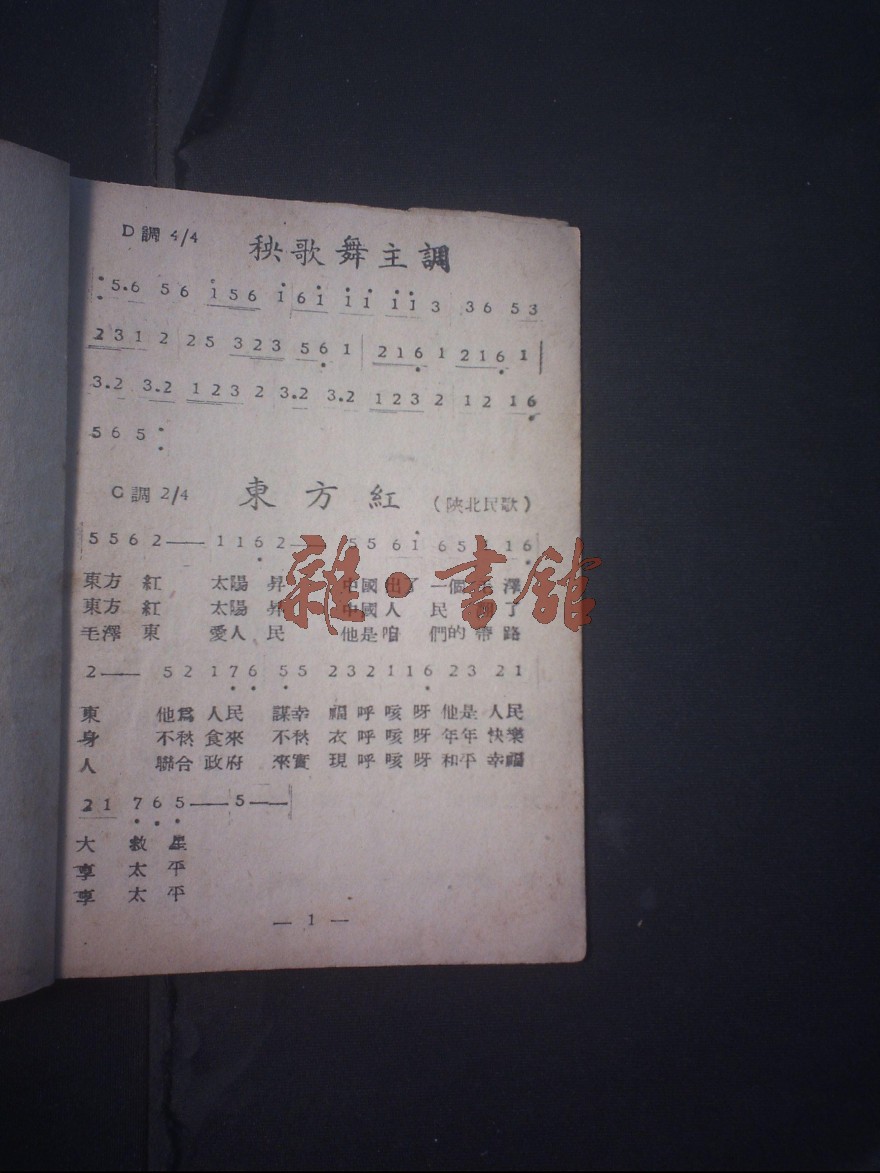 D調 4/4 秧歌舞主調
5.6 5 6 1 5 6 1 6 1 1 1 1 1 3 3 6 5 3
2 3 1 2 2 5 3 2 3 5 6 1 2 1 6 1 2 1 6 1
3.2 3.2 1 2 3 2 3.2 3.2 1 2 3 2 1 2 1 6
5 6 5
C調 2/4 東方紅 (陝北民歌)
5 5 6 2—— 1 1 6 2—— 5 5 6 1 6 5 1 6
東方 紅 太陽 昇 中國出了 一個 澤
東方 紅 太陽 昇 中國人 民 了
毛澤 東 愛人 民 他是咱 們的 帶 路
2—— 5 2 1 7 6 5 5 2 3 2 1 1 6 2 3 2 1
東 他爲 人民 謀幸 福 呼 咳 呀 他是 人民
身 不愁 食來 不愁 衣 呼 咳 呀 年年 快樂
人 聯合 政府 來實 現 呼 咳 呀 和平 幸福
2 1 7 6 5—— 5——
大 救 星
享 太 平
享 太 平
— 1 —
雜·書館